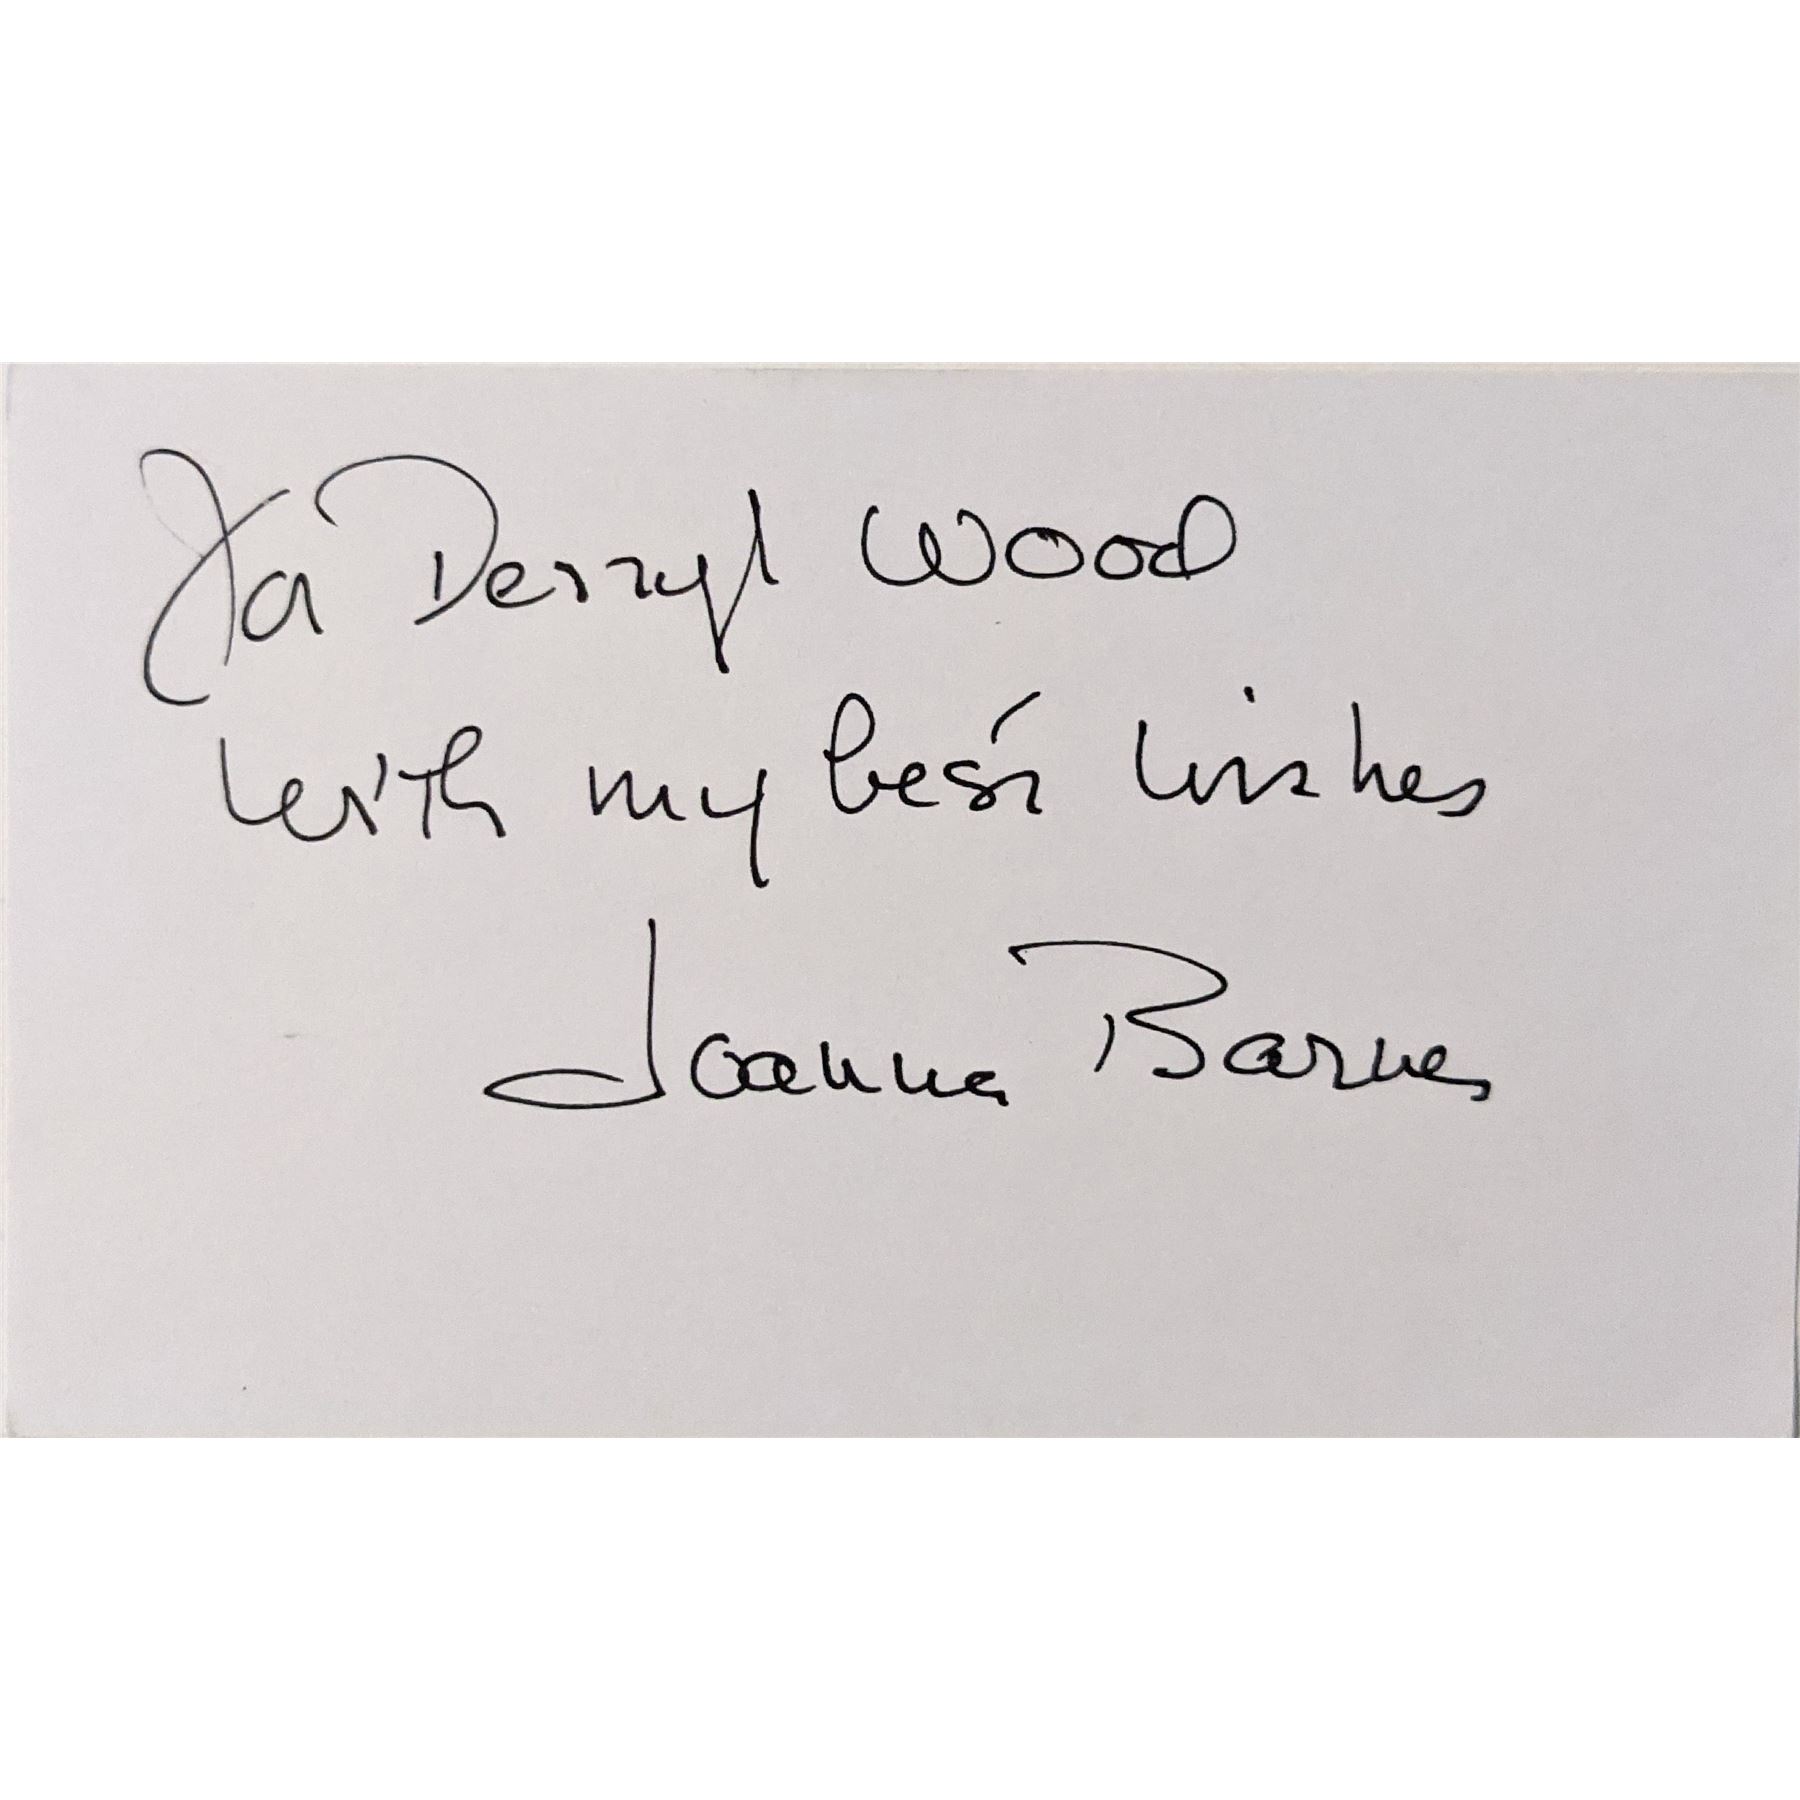 For Derryl Wood
with my best wishes
Joanna Barnes